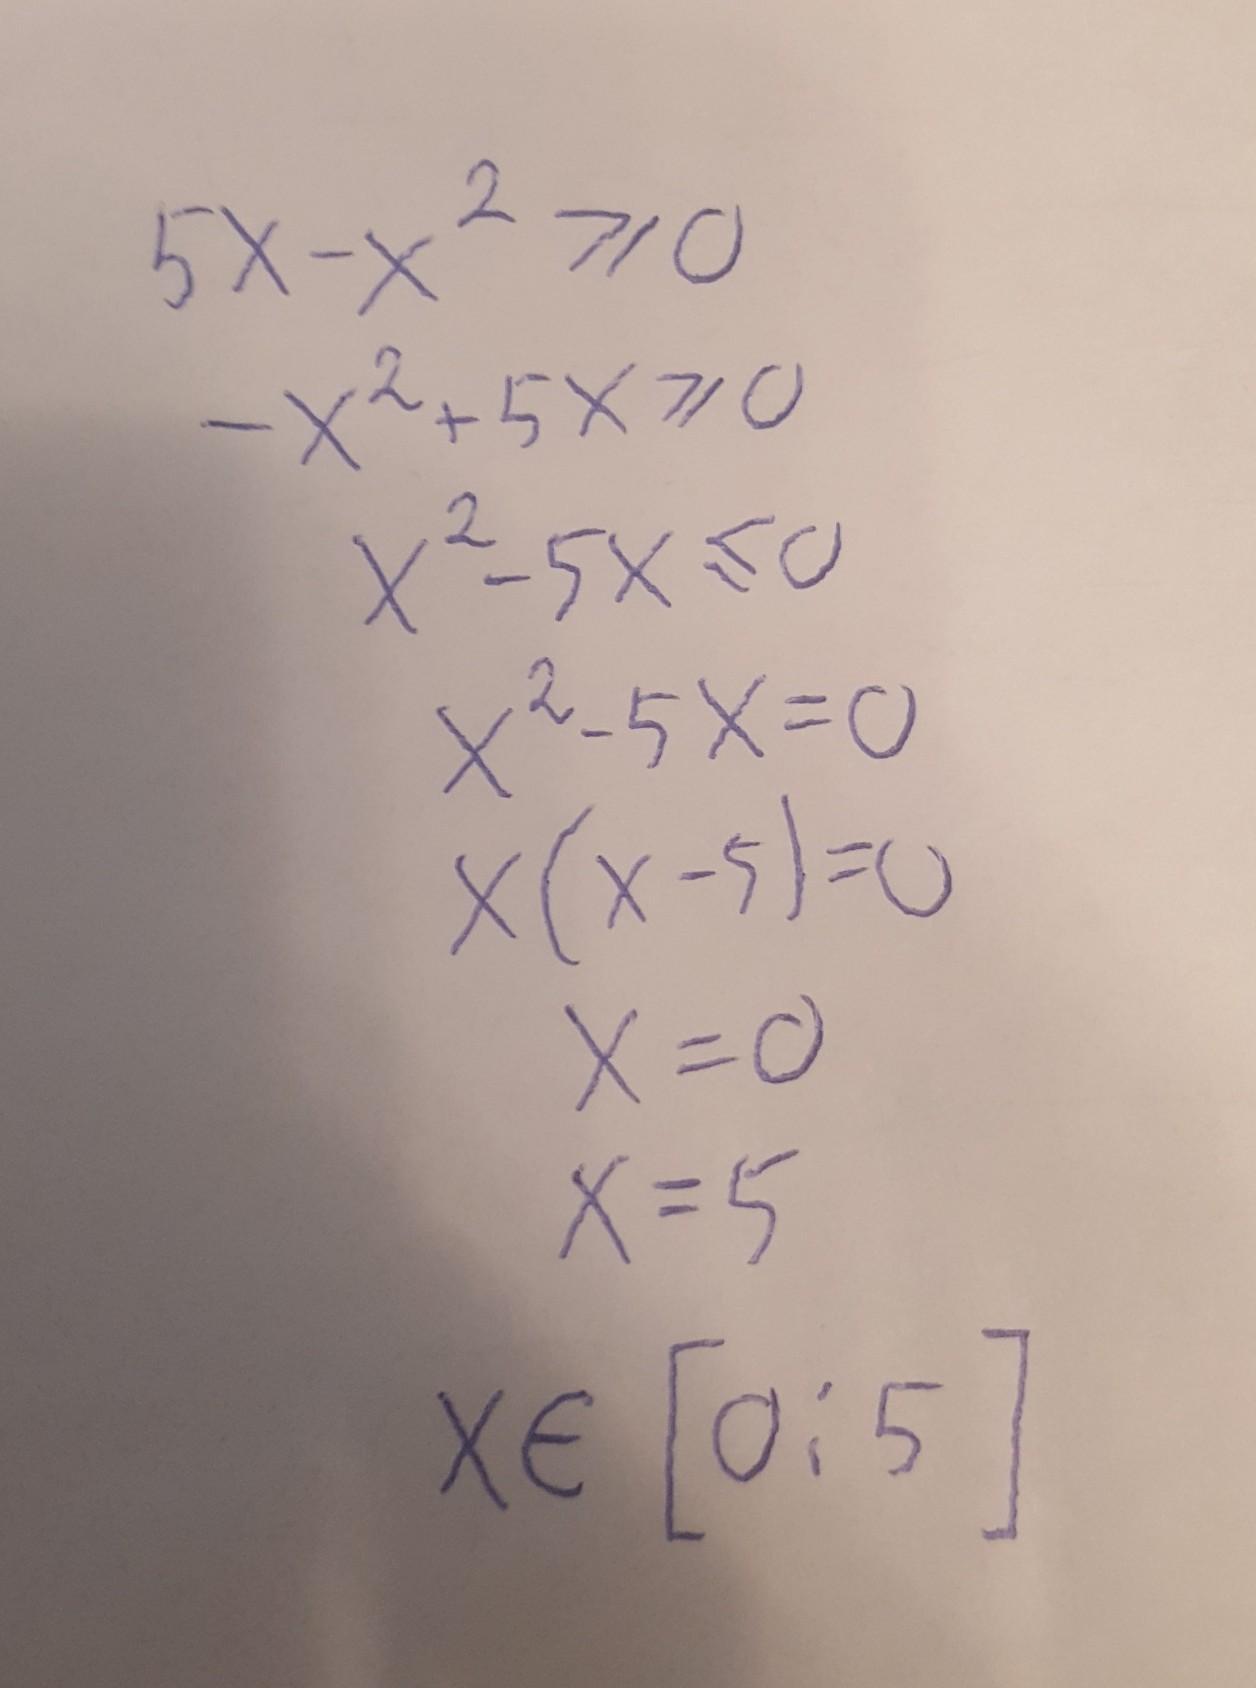 5x-x²⩾0
-x²+5x⩾0
x²-5x⩽0
x²-5x=0
x(x-5)=0
x=0
x=5
x∈[0;5]